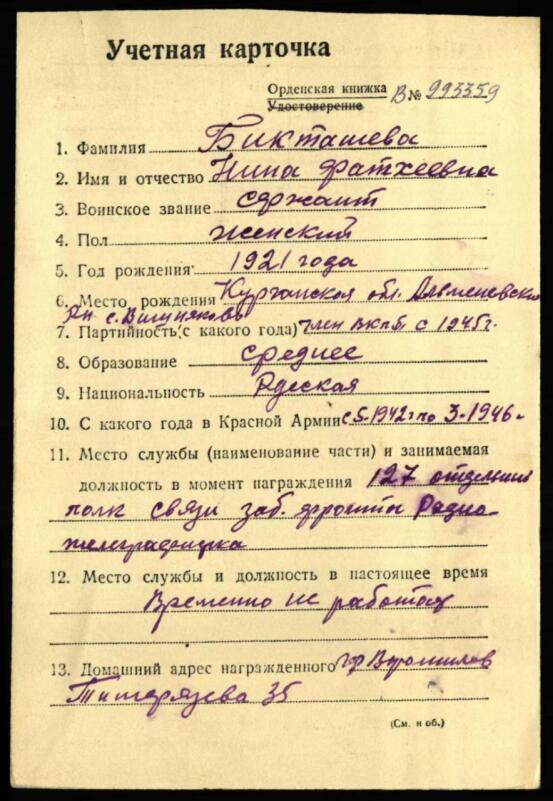 Учетная карточка
Орденская книжка В № 993359
Удостоверение
1. Фамилия Бикташева
2. Имя и отчество Нина Фатхеевна
3. Воинское звание сержант
4. Пол женский
5. Год рождения 1921 года
6. Место рождения Курганская обл.
Рн. с.
7. Партийность (с какого года) Член ВКПб с 1945 г.
8. Образование среднее
9. Национальность Русская
10. С какого года в Красной Армии с 5.1942 г по 3-1946
11. Место службы (наименование части) и занимаемая
должность в момент награждения 127 отдельный
полк связи заб. фронта Радио-
телеграфистка
12. Место службы и должность в настоящее время
Временно не работаю
13. Домашний адрес награжденного гор Ворошилов
35
(См. н об.)